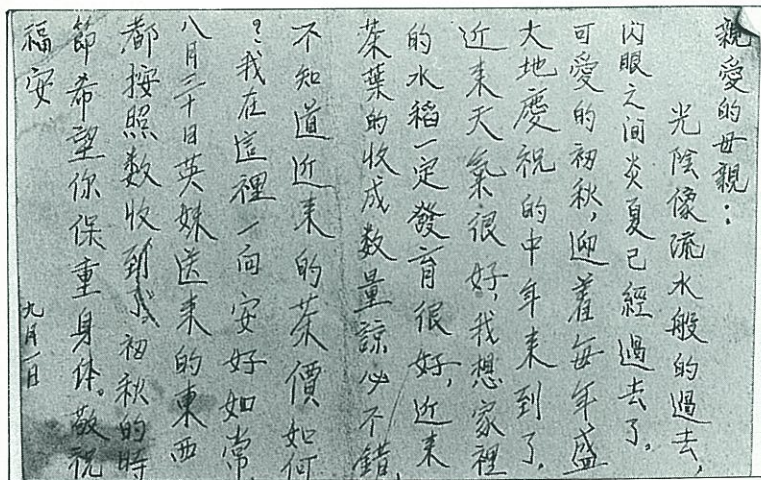 親愛的母親：
光陰像流水般的過去，
闪眼之间炎夏已經過去了。
可愛的初秋，迎着每年盛
大地慶祝的中年来到了。
近来天氣很好，我想家裡
的水稻一定發育很好，近来
茶葉的收成数量諒必不錯，
不知道近来的茶價如何
？我在這裡一向安好如常，
八月三十日英妹送来的東西
都按照数收到
初秋的時
節希望你保重身体。敬祝
福安
九月一日